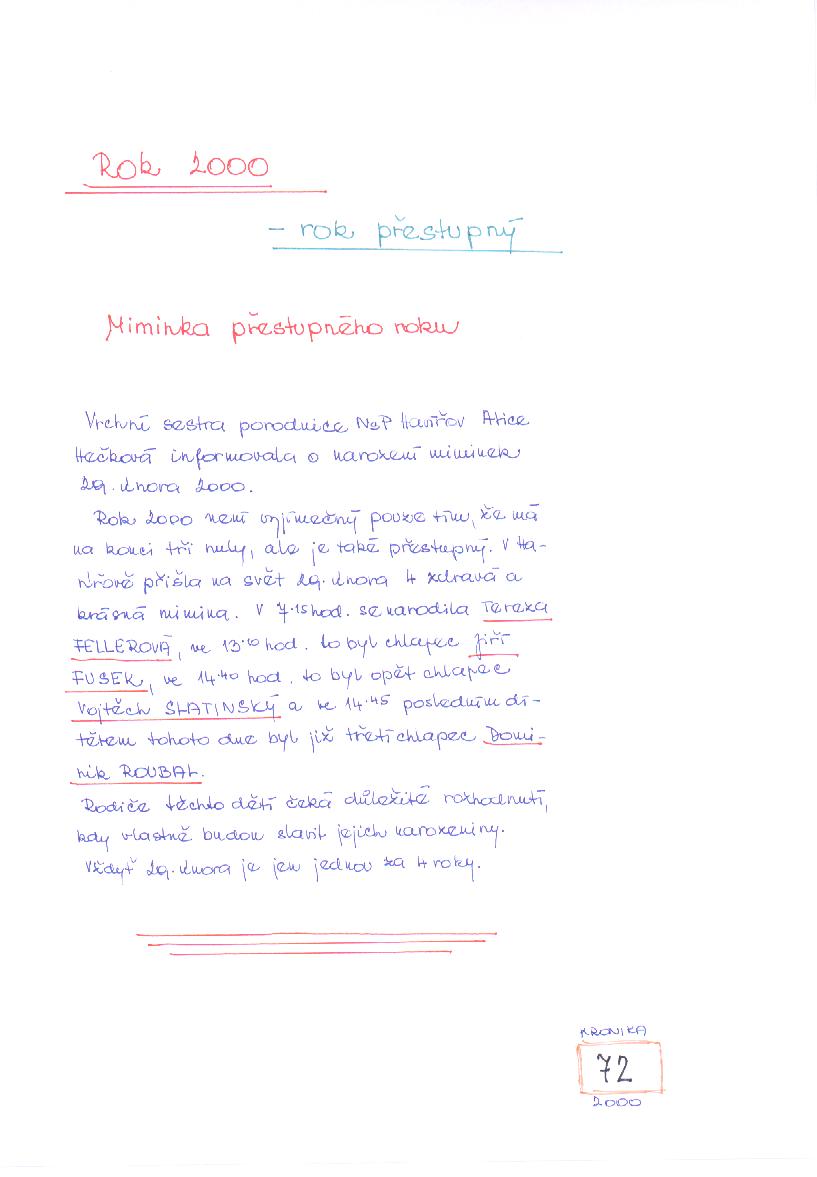 Rok 2000
- rok přestupný
Miminka přestupného roku
Vrchní sestra porodnice NsP Havířov Alice
Hečková informovala o narození miminek
29. února 2000.
Rok 2000 není vyjímečný pouze tím, že má
na konci tři nuly, ale je také přestupný. V Ha-
vířově přišla na svět 29. února 4 zdravá a
krásná mimina. V 7.15 hod. se narodila Tereza
FELLEROVÁ, ve 13.10 hod. to byl chlapec Jiří
FUSEK, ve 14.40 hod. to byl opět chlapec
Vojtěch SLATINSKÝ a ve 14.45 posledním dí-
tětem tohoto dne byl již třetí chlapec Domi-
nik ROUBAL.
Rodiče těchto dětí čeká důležité rozhodnutí,
kdy vlastně budou slavit jejich narozeniny.
Vždyť 29. února je jen jednou za 4 roky.
KRONIKA
72
2000